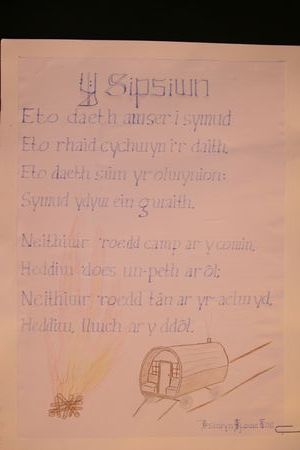 Y Sipsiwn
Eto daeth amser i symud
Eto rhaid cychwyn i'r daith.
Eto daeth sŵn yr olwynion:
Symud ydyw ein gwaith.
Neithiwr 'roedd camp ar y comin,
Heddiw 'does un-peth ar ôl;
Neithiwr 'roedd tân ar yr aelwyd,
Heddiw, lluwch ar y ddôl.